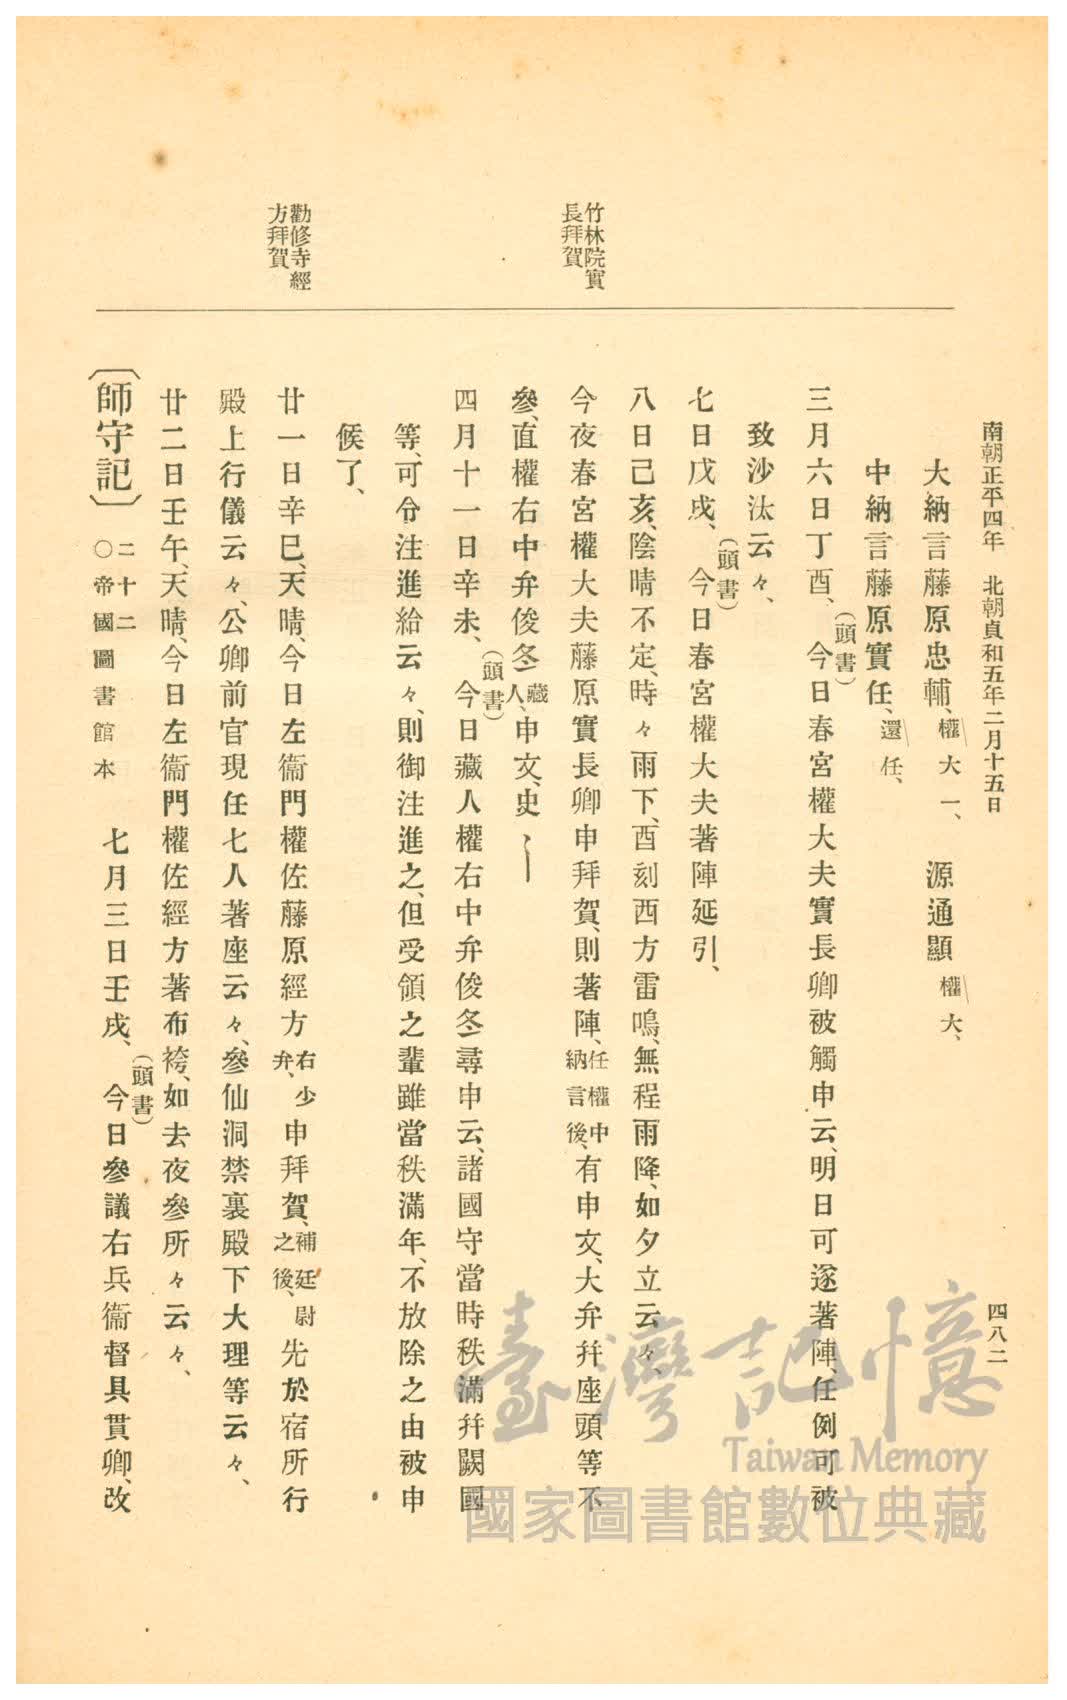 南朝正平四年　北朝貞和五年二月十五日
四八二
竹林院實
長拜賀
勸修寺經
方拜賀
大納言藤原忠輔、權大一、　源通顯權大、
中納言藤原實任、還任、
三月六日丁酉、(頭書)今日春宮權大夫實長卿被觸申云、明日可遂著陣、任例可被
致沙汰云々、
七日戊戌、(頭書)今日春宮權大夫著陣延引、
八日己亥、陰晴不定、時々雨下、酉刻西方雷鳴、無程雨降、如夕立云々、
今夜春宮權大夫藤原實長卿申拜賀、則著陣、任權中納言後、有申文、大弁幷座頭等不
參、直權右中弁俊冬藏人、申文、史
四月十一日辛未、(頭書)今日藏人權右中弁俊冬尋申云、諸國守當時秩滿幷闕國
等、可令注進給云々、則御注進之、但受領之輩雖當秩滿年、不放除之由被申
候了、
廿一日辛巳、天晴、今日左衞門權佐藤原經方右少弁、申拜賀、補廷尉之後、先於宿所行
殿上行儀云々、公卿前官現任七人著座云々、參仙洞禁裏殿下大理等云々、
廿二日壬午、天晴、今日左衞門權佐經方著布袴、如去夜參所々云々、
〔師守記〕二十二○帝國圖書館本　七月三日壬戌、(頭書)今日參議右兵衞督具貫卿、改
臺灣記憶
Taiwan Memory
國家圖書館數位典藏